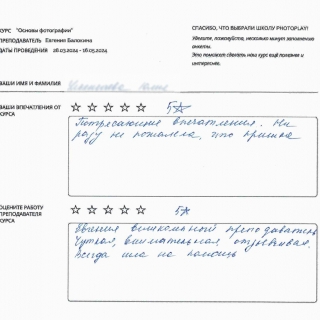 КУРС "Основы фотографии"
ПРЕПОДАВАТЕЛЬ Евгения Балюкина
ДАТЫ ПРОВЕДЕНИЯ 28.03.2024 - 16.05.2024
СПАСИБО, ЧТО ВЫБРАЛИ ШКОЛУ PHOTOPLAY!
Уделите, пожалуйста, несколько минут заполнению
анкеты.
Это поможет сделать наш курс ещё полезнее и
интереснее.
ВАШИ ИМЯ И ФАМИЛИЯ
ВАШИ ВПЕЧАТЛЕНИЯ ОТ
КУРСА
5☆
Потрясающие впечатления. Ни
разу не пожалела, что пришла
ОЦЕНИТЕ РАБОТУ
ПРЕПОДАВАТЕЛЯ
КУРСА
5☆
Евгения великолепный преподаватель
Чуткая, внимательная, отзывчивая.
Всегда шла на помощь